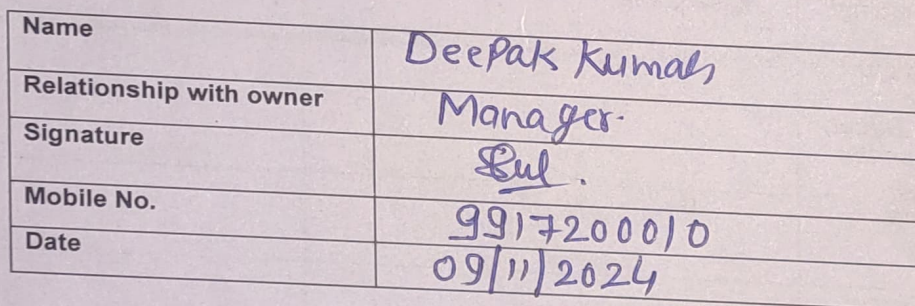 Name DeePak Kumar
Relationship with owner Manager.
Signature
Mobile No. 9917200010
Date 09/11/2024